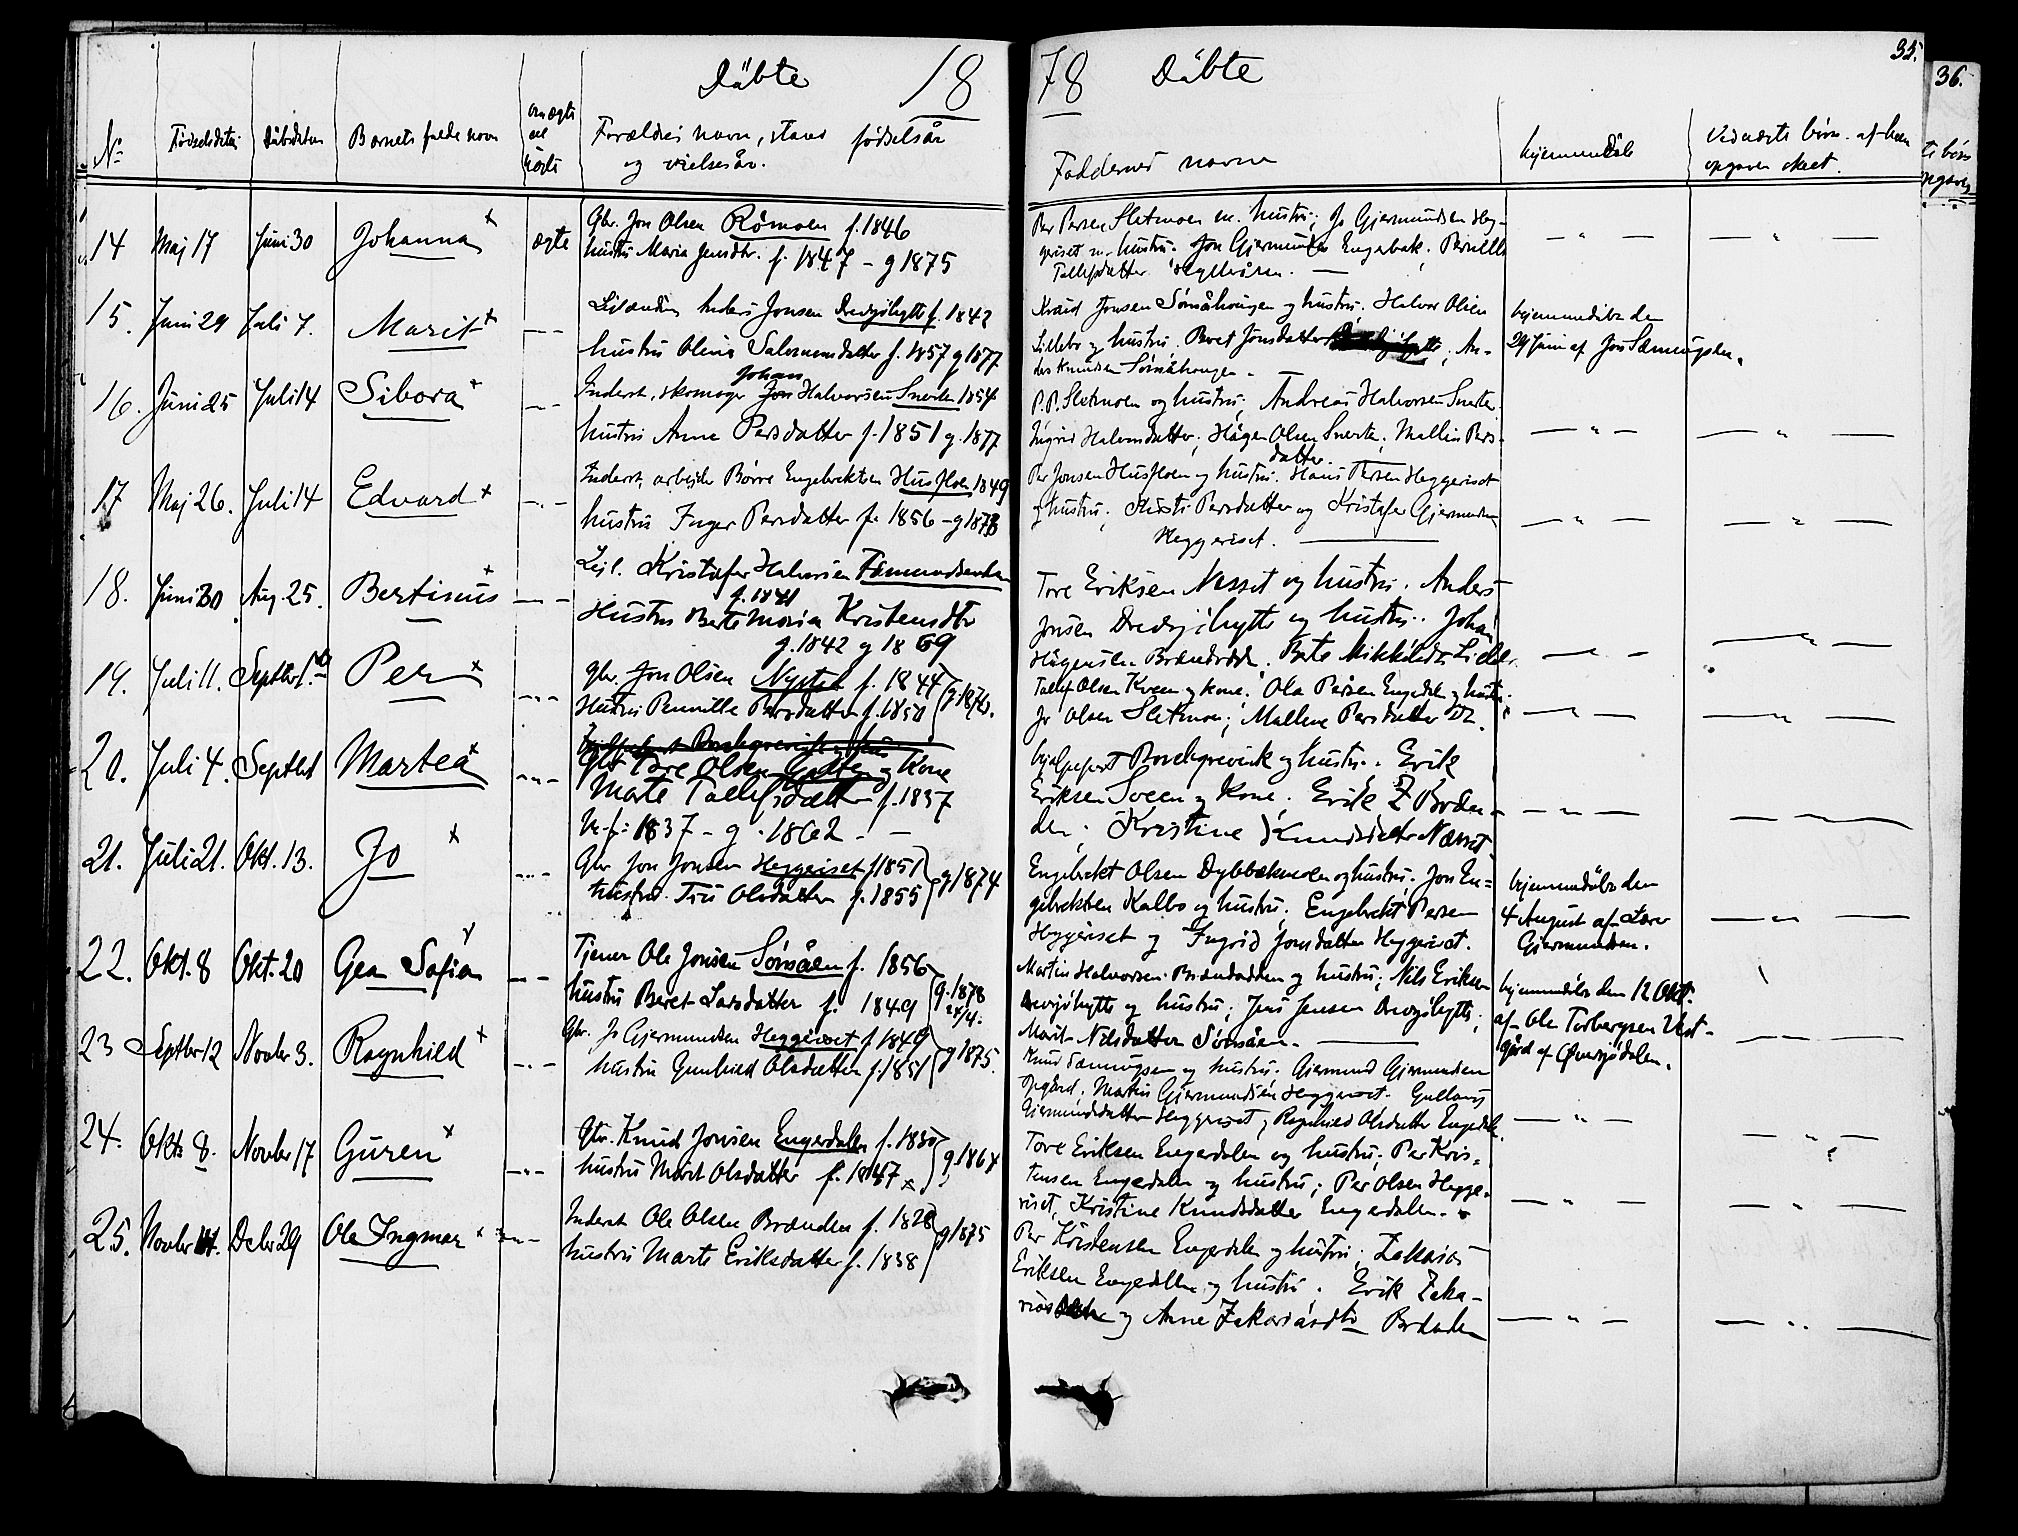 35.
36.
Dåbte 18
78 Dåbte
No Fødselsdatum Dåbsdatum Barnets fulde navn uægte el ægte Forældres navn, stand fødselsår og vielsesår.
Faddernes navne hjemmedåb Ved uægte børn af hvem opgaven skeet.
14 Maj 17 Juni 30 Johanna x ægte Gbr. Jon Olsen Römoen f. 1846
hustru Maria Jensdtr. f. 1847 - g 1875
Per Persen Sletmoen m. hustru; Jo Gjermundsen Heg-
geriset m. hustru; Jon Gjermundsen Engebak; Pernille
15. Juni 29 Juli 7. Marit x Anders Jonsen Drevsjöhytte f. 1842
hustru Olina Salomonsdatter f. 1857 g 1877
Knud Jonsen Sömåhougen og hustru; Halvor Olsen
Lillebo og hustru. Beret Jonsdatter; An-
ders Knudsen Sömåhougen.
hjemmedåbt den
29 Juni af Jon Sæmingsen.
16. Juni 25 Juli 14 Sibora x Inderst, skomager Johan Halvorsen Snerten 1854
hustru Anne Persdatter f. 1851 g. 1877
P. P. Sletmoen og hustru; Andreas Halvorsen Snerten.
Ingrid Halvorsdatter; Hågen Olsen Snerten; Mallin Pers-
datter
17 Maj 26. Juli 14 Edvard x Inderst, arbejder Börre Engebretsen Husfloen 1849
hustru Inger Persdatter f. 1856 - g 1878
Per Jonsen Husfloen og hustru. Hans Persen Heggeriset
og hustru; Persdatter og Kristofer Gjermundsen
Heggeriset.
18. Juni 30 Aug. 25. Bertinus x Lejl. Kristofer Halvorsen Femundsenden
f. 1841
Hustru Berte Maria Kristensdtr
g. 1842 g 1869
Tore Eriksen Nesset og hustru. Anders
Jonsen Drevsjöhytte og hustru. Johan
Hågensen Brændvolden. Berte Mikkelsdtr
19. Juli 11. Septbr 1. Per x gbr. Jon Olsen Nysted f. 1844
Hustru Pernille Persdatter f. 1850 g. 1872.
Tollef Olsen Kveen og kone. Ola Persen Engerdalen og hustru.
Jo Olsen Sletmoen; Mallene Persdatter
20. Juli 4. Septbr 1 Martea x
Gbr Tore Olsen og Kone
Marte Tollefsdatter f. 1837
M. f. 1837 - g. 1862
hjælpeprest Borchgrevink og hustru. Erik
Eriksen Sveen og Kone. Erik Z Bræn-
den; Kristine Knudsdatter Næsset.
21. Juli 21. Okt. 13. Jo x Gbr Jon Jonsen Heggeriset f 1851
hustru Siri Olsdatter f. 1855 g 1874
Engebrekt Olsen Dybbækmoen og hustru; Jon En=
gebretsen Kalbo og hustru. Engebrekt Persen
Heggeriset og Ingrid Jonsdatter Heggeriset.
hjemmedåbt den
4 August af Lærer
Gjermundsen.
22. Okt. 8 Okt. 20 Gea Sofia Tjener Ole Jonsen Sömåen f. 1856
hustru Beret Larsdatter f. 1849 g. 1878
24/4.
Martin Halvorsen Brændvolden og hustru; Nils Eriksen
Drevsjöhytte og hustru; Jens Jensen Drevsjöhytte;
Marit Nilsdatter Sömåen.
hjemmedöbt den 12 Okt.
af Ole Torbergsen Vest-
gård af Øvresjödalen.
23 Septbr 12 Novbr 3. Ragnhild x Gbr. Jo Gjermundsen Heggeriset f 1849
hustru Gunhild Olsdatter f. 1851 g 1875.
Knud Sæmingsen og hustru. Gjermund Gjermundsen
Opgård; Martin Gjermundsen Heggeriset. Gullaug
Gjermundsdatter Heggeriset, Ragnhild Olsdatter Engerdalen.
24. Okt. 8. Novbr 17 Guren x Gbr. Knud Jonsen Engerdalen f. 1830
hustru Marit Olsdatter f. 1847 g. 1864
Tore Eriksen Engerdalen og hustru; Per Kris-
tensen Engerdalen og hustru; Per Olsen Hegge-
riset, Kristine Knudsdatter Engerdalen.
25. Novbr Decbr 29 Ole Ingmar x Inderst Ole Olsen Brænden f. 1828
hustru Marte Eriksdatter f. 1838 g 1875
Per Kristensen Engerdalen og hustru; Zakarias
Eriksen Engerdalen og hustru. Erik Zaka-
rias og Anne Zakariasdtr Brænden